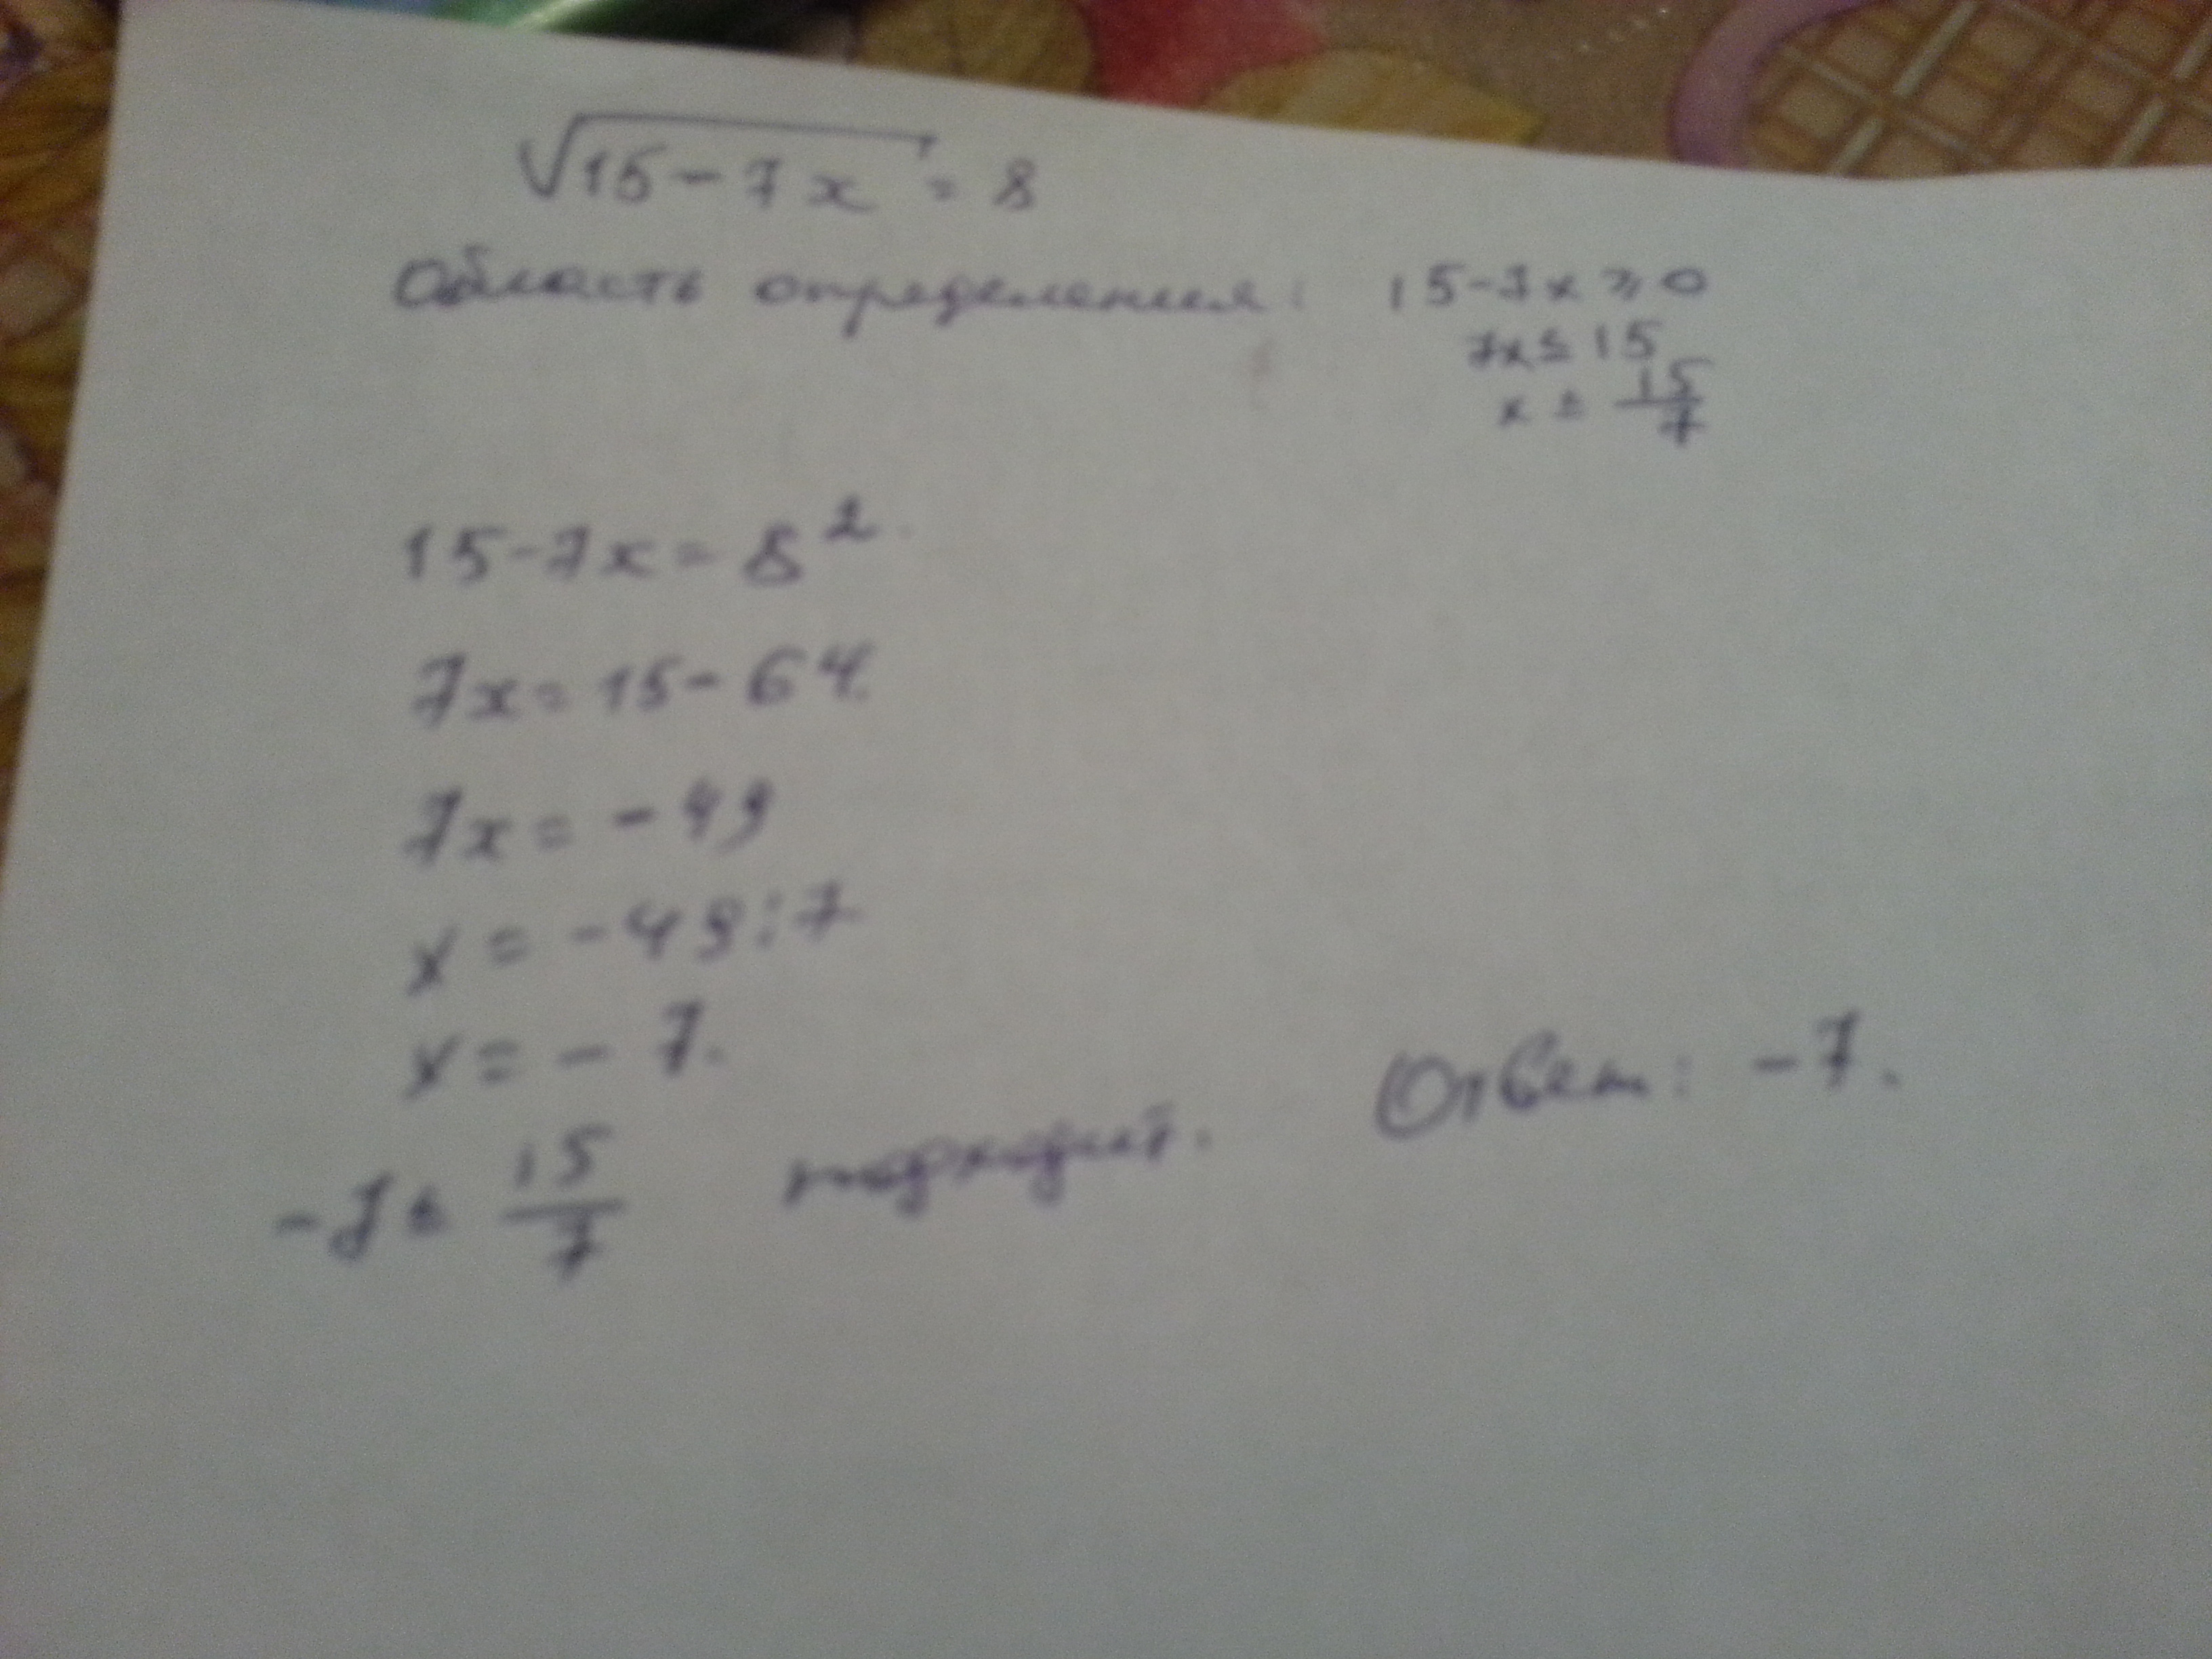 √15-7x = 8
Область определения: 15-7x ≥ 0
7x ≤ 15
x ≤ 15/7
15-7x = 8².
7x = 15-64.
7x = -49
x = -49:7
x = -7.
-7 ≤ 15/7 подходит. Ответ: -7.